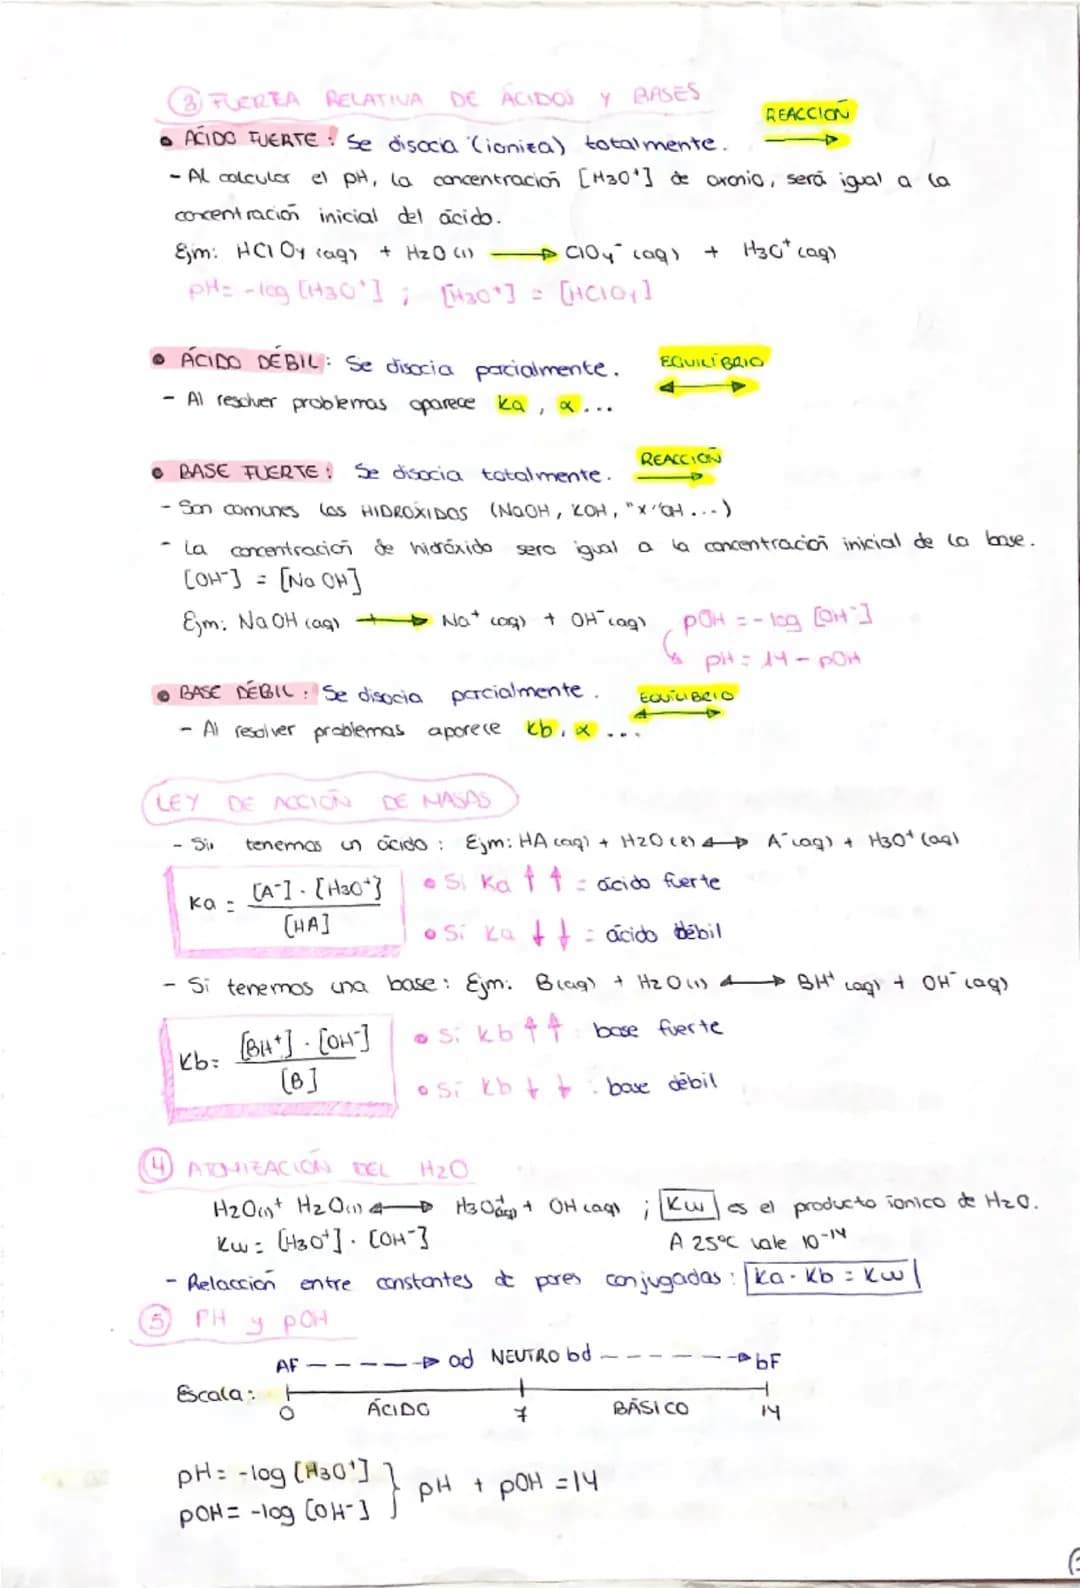 ③ FUERZA RELATIVA DE ÁCIDOS Y BASES
REACCIÓN
• ÁCIDO FUERTE: Se disocia (ioniza) totalmente.
- Al calcular el pH, la concentración [H3O⁺] de oxonio, será igual a la
concentración inicial del ácido.
Ejm: HClO4 (aq) + H2O (l) → ClO4⁻ (aq) + H3O⁺ (aq)
pH = -log [H3O⁺] ; [H3O⁺] = [HClO4]
• ÁCIDO DÉBIL: Se disocia parcialmente. EQUILÍBRIO
- Al resolver problemas aparece Ka, α...
REACCIÓN
• BASE FUERTE: Se disocia totalmente.
- Son comunes los HIDRÓXIDOS (NaOH, KOH, "X"OH...)
- La concentración de hidróxido sera igual a la concentración inicial de la base.
[OH⁻] = [NaOH]
Ejm: NaOH (aq) → Na⁺ (aq) + OH⁻ (aq) pOH = -log [OH⁻]
pH = 14 - pOH
• BASE DÉBIL: Se disocia parcialmente. EQUILIBRIO
- Al resolver problemas aparece Kb, α...
LEY DE ACCIÓN DE MASAS
- Si tenemos un ácido: Ejm: HA (aq) + H2O (l) ↔ A⁻ (aq) + H3O⁺ (aq)
Ka = [A⁻] · [H3O⁺] / [HA]
• Si Ka ↑↑ = ácido fuerte
• Si Ka ↓↓ = ácido débil
- Si tenemos una base: Ejm: B (aq) + H2O (l) ↔ BH⁺ (aq) + OH⁻ (aq)
Kb = [BH⁺] · [OH⁻] / [B]
• Si Kb ↑↑ : base fuerte
• Si Kb ↓↓ : base débil
④ ATOMIZACIÓN DEL H2O
H2O (l) + H2O (l) ↔ H3O⁺ (aq) + OH (aq) ; Kw es el producto iónico de H2O.
Kw = [H3O⁺] · [OH⁻] A 25ºC vale 10⁻¹⁴
- Relacción entre constantes de pares conjugadas: Ka · Kb = Kw
⑤ PH y pOH
AF - - - - → ad NEUTRO bd - - - - → bF
Escala: 0 ÁCIDO 7 BÁSICO 14
pH = -log [H3O⁺]
pOH = -log [OH⁻] } pH + pOH = 14